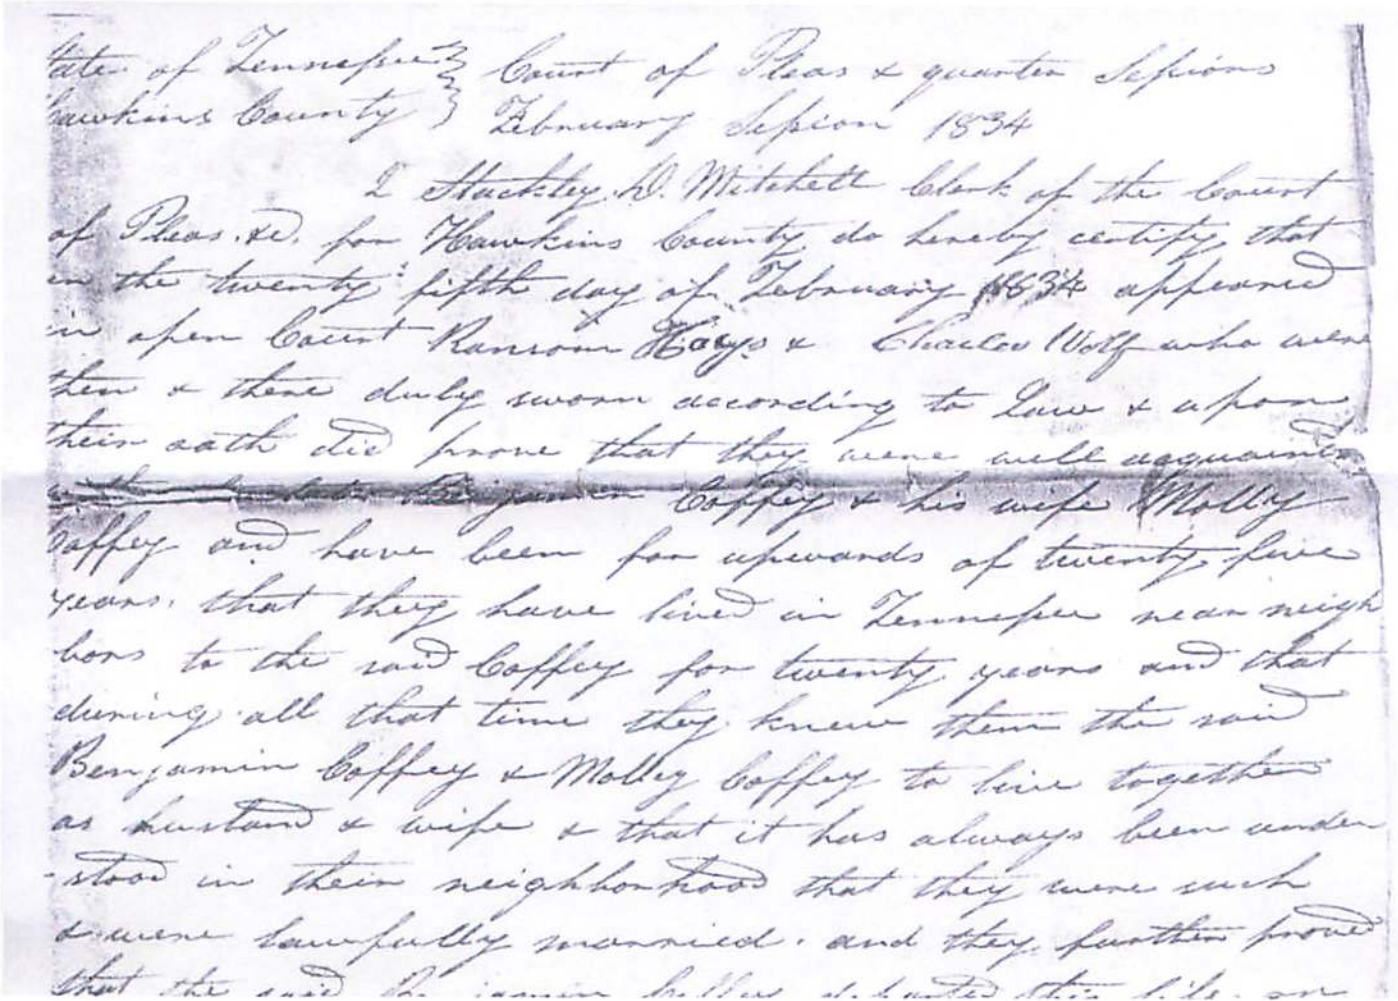 tate of Tennessee } Court of Pleas & quarter Sessions
hawkins County } February Session 1834
I Stockley D. Mitchell Clerk of the Court
of Pleas &c. for Hawkins County do hereby certify that
on the twenty fifth day of February 1834 appeared
in open Court Ransom Hays & Charles Wolf who were
then & there duly sworn according to Law & upon
their oath did prove that they were well acquainted
Benjamin Coffey & his wife Molly
Coffey and have been for upwards of twenty five
years. that they have lived in Tennessee near neigh
bors to the said Coffey for twenty years and that
during all that time they knew them the said
Benjamin Coffey & Molley Coffey to live together
as husband & wife & that it has always been under
-stood in their neighborhood that they were such
& were lawfully married. and they further proved
that the said Benjamin Coffey departed this life on